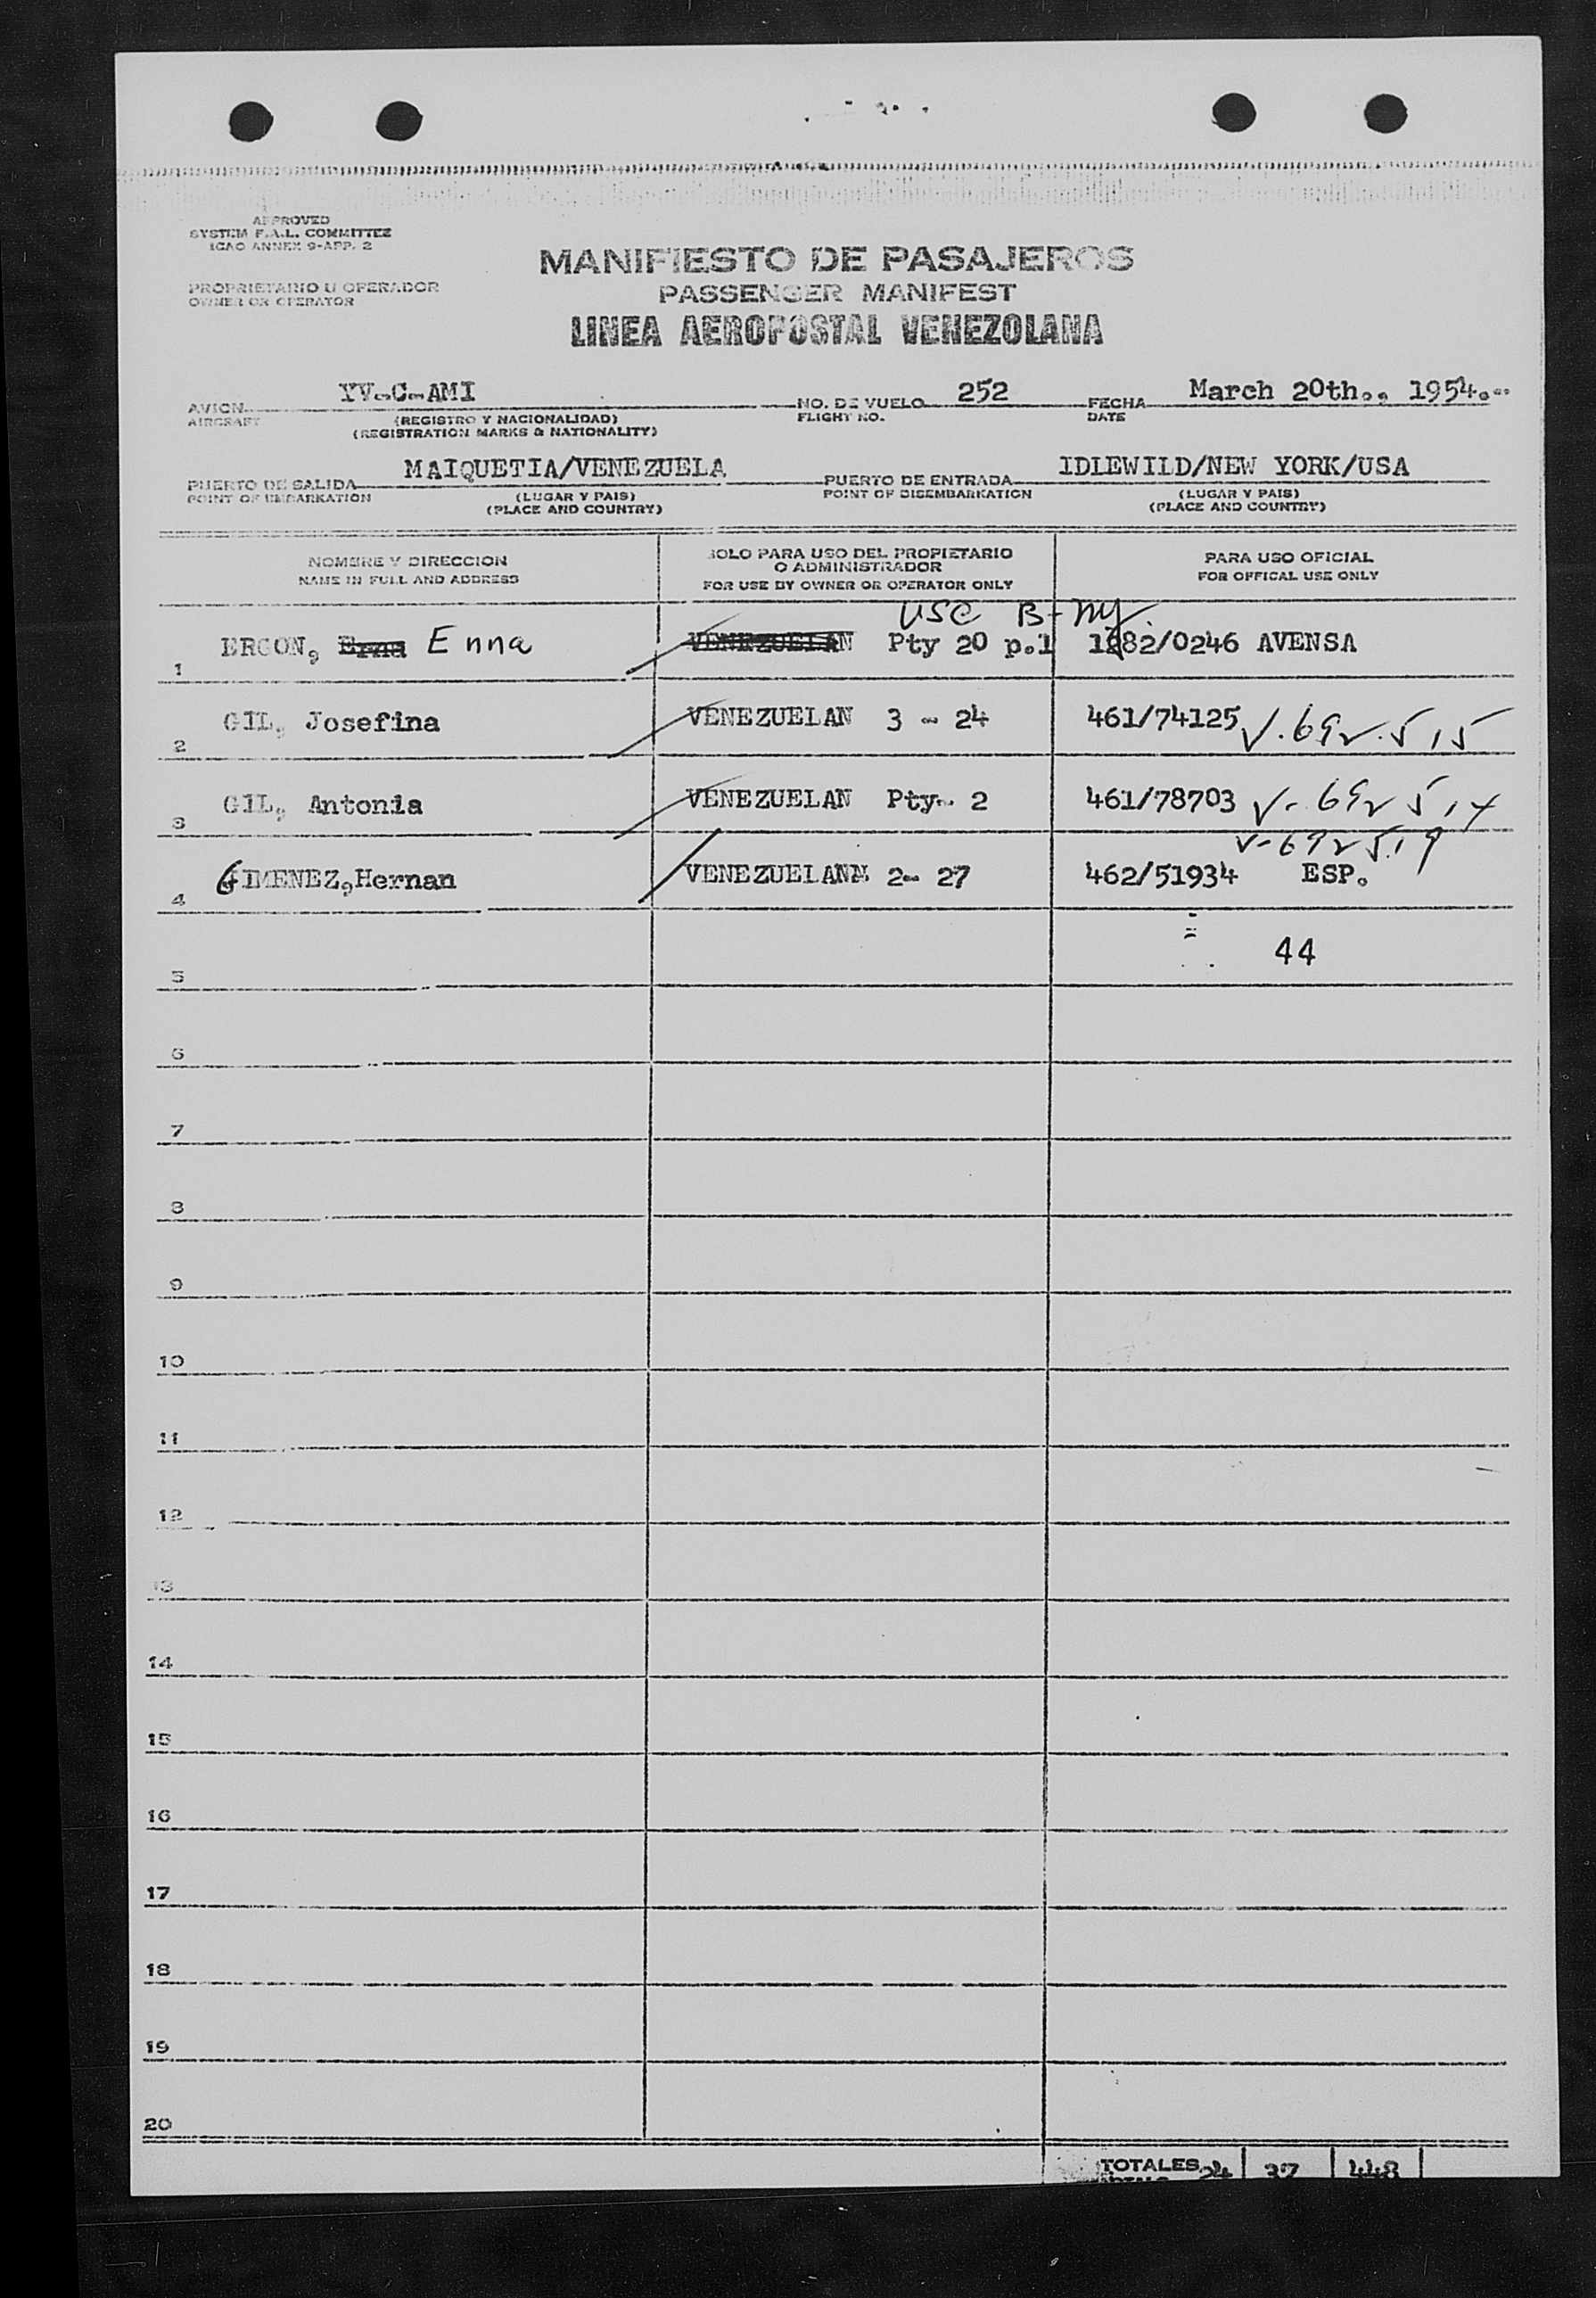 APPROVED
SYSTEM F.A.L. COMMITTEE
ICAO ANNEX 9-APP. 2
MANIFIESTO DE PASAJEROS
PASSENGER MANIFEST
PROPRIETARIO U OPERADOR
OWNER OR OPERATOR
LINEA AEROPOSTAL VENEZOLANA
AVION YV-C-AMI NO. DE VUELO 252 FECHA March 20th.. 1954.
AIRCRAFT (REGISTRO Y NACIONALIDAD) FLIGHT NO. DATE
(REGISTRATION MARKS & NATIONALITY)
PUERTO DE SALIDA MAIQUETIA/VENEZUELA PUERTO DE ENTRADA IDLEWILD/NEW YORK/USA
POINT OF EMBARKATION (LUGAR Y PAIS) POINT OF DISEMBARKATION (LUGAR Y PAIS)
(PLACE AND COUNTRY) (PLACE AND COUNTRY)
NOMBRE Y DIRECCION SOLO PARA USO DEL PROPIETARIO PARA USO OFICIAL
O ADMINISTRADOR
NAME IN FULL AND ADDRESS FOR USE BY OWNER OR OPERATOR ONLY FOR OFFICAL USE ONLY
USC B-NY
1 ERCON, Erna Enna VENEZUELAN Pty 20 p.1 82/0246 AVENSA
2 GIL, Josefina VENEZUELAN 3 - 24 461/74125 V.692.515
3 GIL, Antonia VENEZUELAN Pty- 2 461/78703 V-692514
V-692519
4 GIMENEZ,Hernan VENEZUELAN 2- 27 462/51934 ESP.
44
5
6
7
8
9
10
11
12
13
14
15
16
17
18
19
20
TOTALES 24 37 448